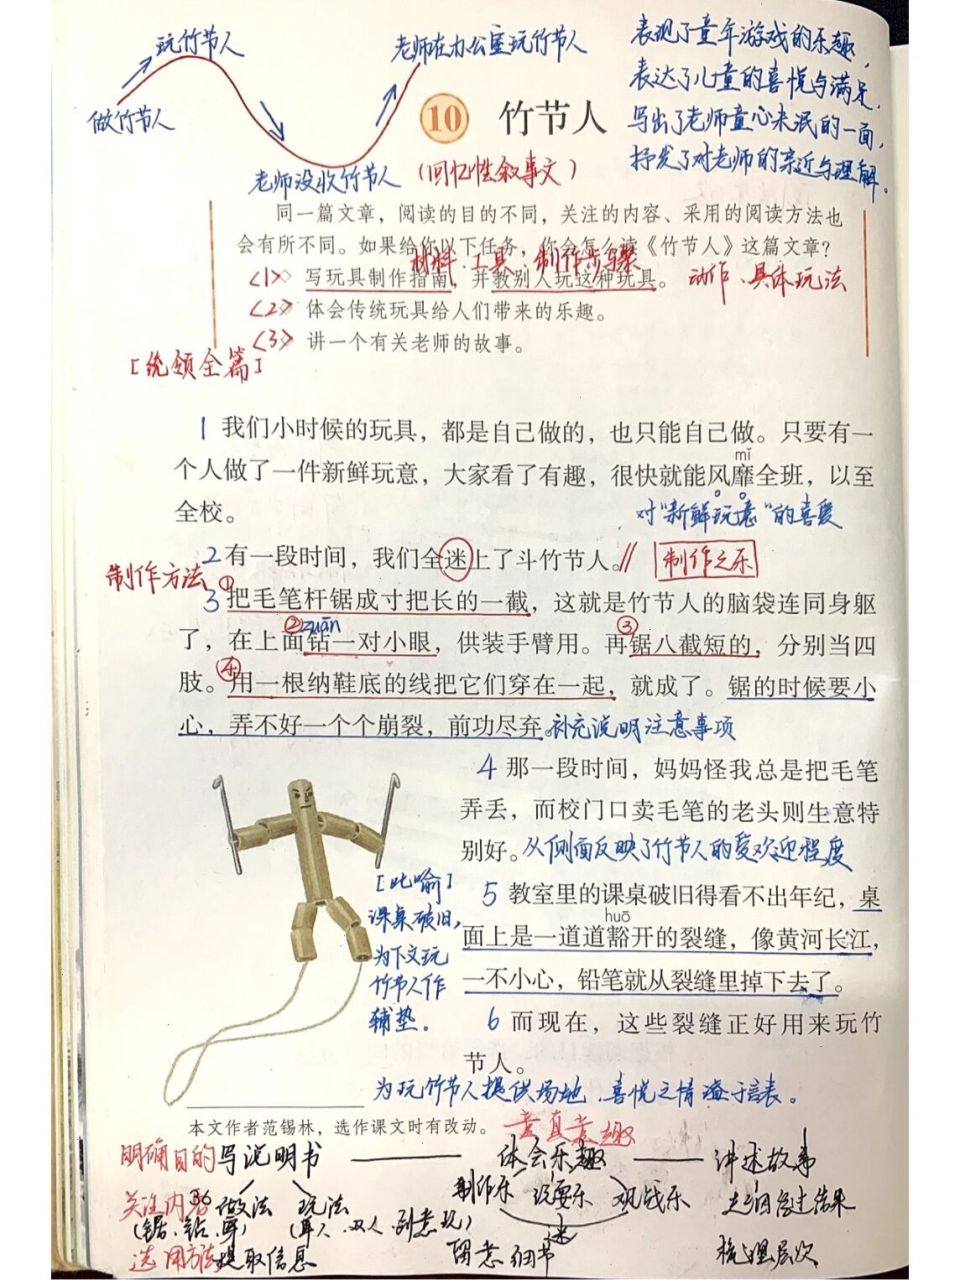 玩竹节人
做竹节人
老师没收竹节人
老师在办公室玩竹节人
表现了童年游戏的乐趣，
表达了儿童的喜悦与满足，
写出了老师童心未泯的一面，
抒发了对老师的亲近与理解。
10 竹节人
(回忆性叙事文)
同一篇文章，阅读的目的不同，关注的内容、采用的阅读方法也
会有所不同。如果给你以下任务，你会怎么读《竹节人》这篇文章？
材料、工具、制作步骤
<1> 写玩具制作指南，并教别人玩这种玩具。 动作、具体玩法
<2> 体会传统玩具给人们带来的乐趣。
<3> 讲一个有关老师的故事。
[统领全篇]
1 我们小时候的玩具，都是自己做的，也只能自己做。只要有一
mǐ
个人做了一件新鲜玩意，大家看了有趣，很快就能风靡全班，以至
全校。 对“新鲜玩意”的喜爱
2 有一段时间，我们全迷上了斗竹节人。// 制作之乐
制作方法
3 ①把毛笔杆锯成寸把长的一截，这就是竹节人的脑袋连同身躯
②zuān ③
了，在上面钻一对小眼，供装手臂用。再锯八截短的，分别当四
④
肢。用一根纳鞋底的线把它们穿在一起，就成了。锯的时候要小
心，弄不好一个个崩裂，前功尽弃。补充说明注意事项
4 那一段时间，妈妈怪我总是把毛笔
弄丢，而校门口卖毛笔的老头则生意特
别好。从侧面反映了竹节人的受欢迎程度
5 教室里的课桌破旧得看不出年纪，桌
huō
面上是一道道豁开的裂缝，像黄河长江，
一不小心，铅笔就从裂缝里掉下去了。
[比喻]
课桌破旧，
为下文玩
竹节人作
辅垫。
6 而现在，这些裂缝正好用来玩竹
节人。
为玩竹节人提供场地，喜悦之情溢于言表。
本文作者范锡林，选作课文时有改动。 童真童趣
明确目的 写说明书 —— 体会乐趣 —— 讲述故事
制作乐 设耍乐 观战乐
关注内容 做法 玩法
36
迷
选用方法 提取信息 留意细节 梳理层次